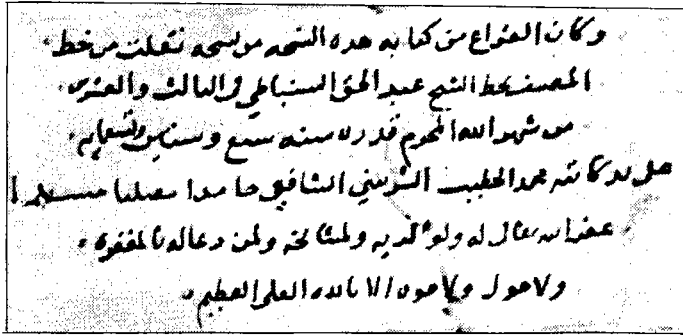 وكان الفراغ من كتابه هده النسخه من نسخه نقلت من خط
المصنف بخط الشيخ عبد الحق السنباطي في الثالث والعشرين
من شهر الله المحرم سنه سبع وستين وتسعمايه
محمد الخطيب الشربيني الشافعي حامدا مصليا مسلما
غفر الله تعالى له ولوالديه ولمشايخه ولمن دعا له بالمغفره
ولا حول ولا قوه الا بالله العلي العظيم